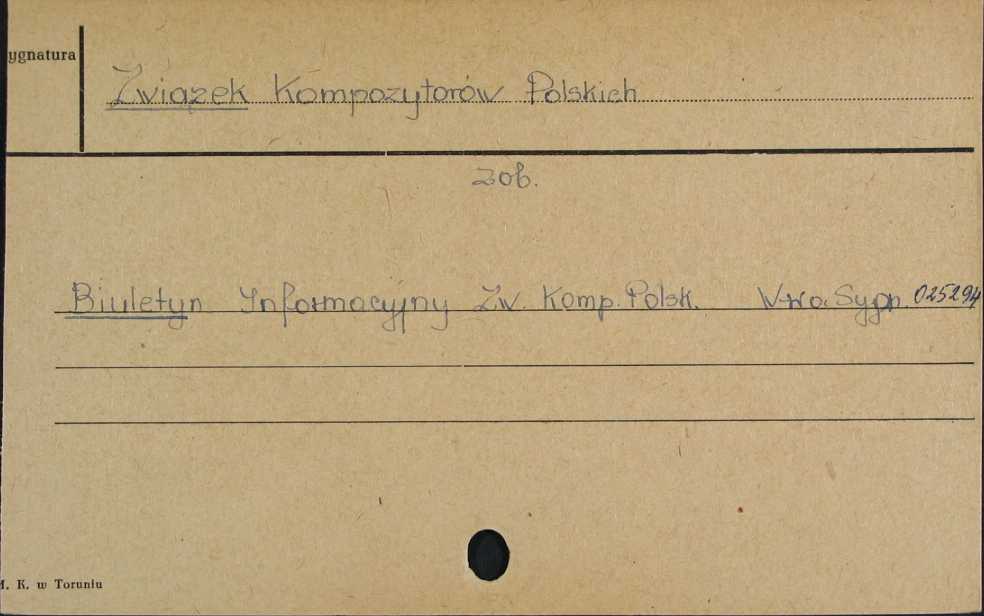 ygnatura
Związek Kompozytorów Polskich
zob.
Biuletyn Informacyjny Zw. Komp. Polsk. W-wa. Sygn. 025294
M. K. w Toruniu